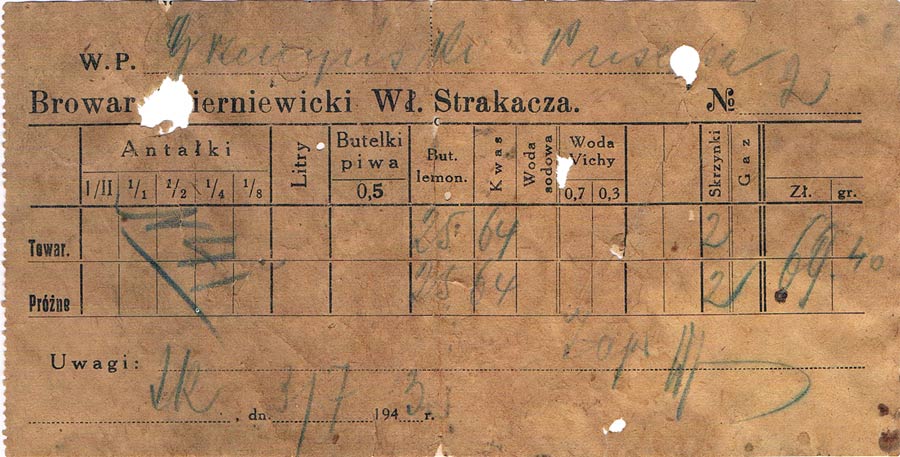 W.P.
Browar ierniewicki Wł. Strakacza. № 2
Antałki Litry Butelki piwa But. lemon. Kwas Woda sodowa Woda Vichy Skrzynki Gaz
I/II 1/1 1/2 1/4 1/8 0,5 0,7 0,3 Zł. gr.
Towar. 25 64 2 69.40
Próżne 25 64 2
Uwagi:
Sk , dn. 3/7 1943 r.